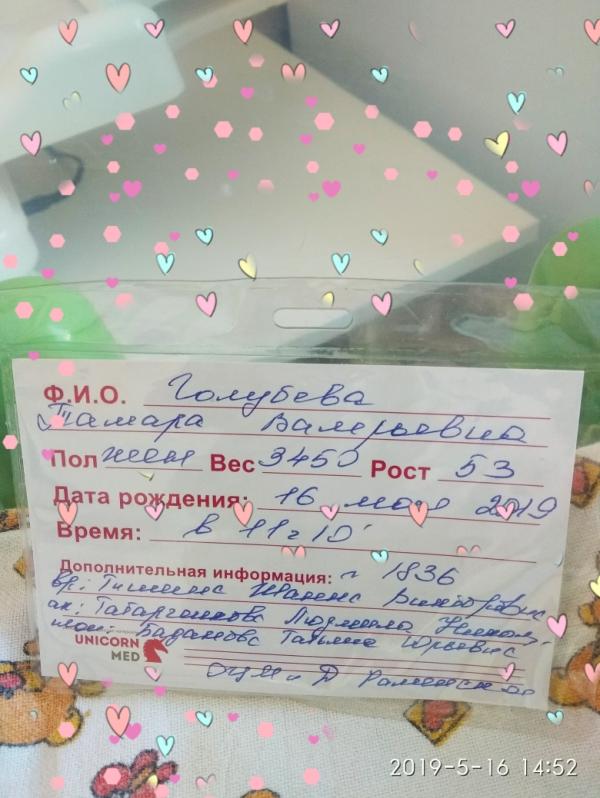 Ф.И.О. Голубева
Тамара Валерьевна
Пол жен Вес 3450 Рост 53
Дата рождения: 16 мая 2019
Время: в 11ч 10'
Дополнительная информация: 1836
вр:
ак: Людмила
Татьяна Юрьевна
UNICORN
MED
2019-5-16 14:52